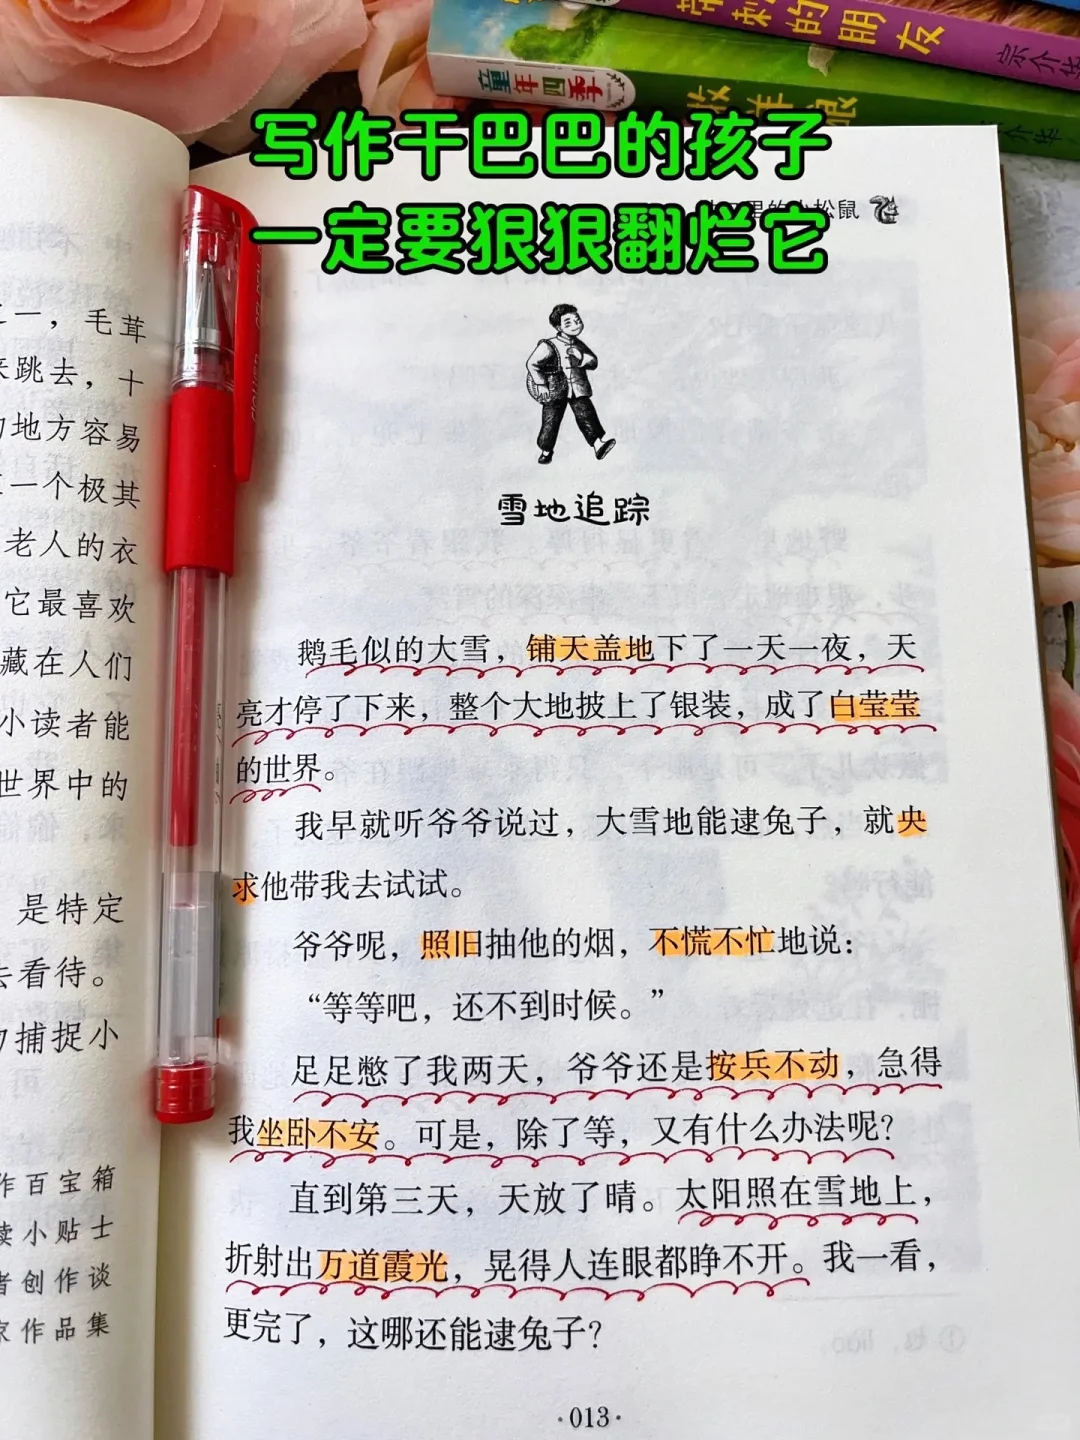 带刺的朋友
宗介华
童年四季
牧羊狼
介华
写作干巴巴的孩子
一定要狠狠翻烂它
小松鼠
雪地追踪
鹅毛似的大雪，铺天盖地下了一天一夜，天
亮才停了下来，整个大地披上了银装，成了白莹莹
的世界。
我早就听爷爷说过，大雪地能逮兔子，就央
求他带我去试试。
爷爷呢，照旧抽他的烟，不慌不忙地说：
“等等吧，还不到时候。”
足足憋了我两天，爷爷还是按兵不动，急得
我坐卧不安。可是，除了等，又有什么办法呢？
直到第三天，天放了晴。太阳照在雪地上，
折射出万道霞光，晃得人连眼都睁不开。我一看，
更完了，这哪还能逮兔子？
·013·
一，毛茸
来跳去，十
地方容易
一个极其
老人的衣
它最喜欢
藏在人们
小读者能
世界中的
是特定
去看待。
捕捉小
作百宝箱
读小贴士
者创作谈
家作品集